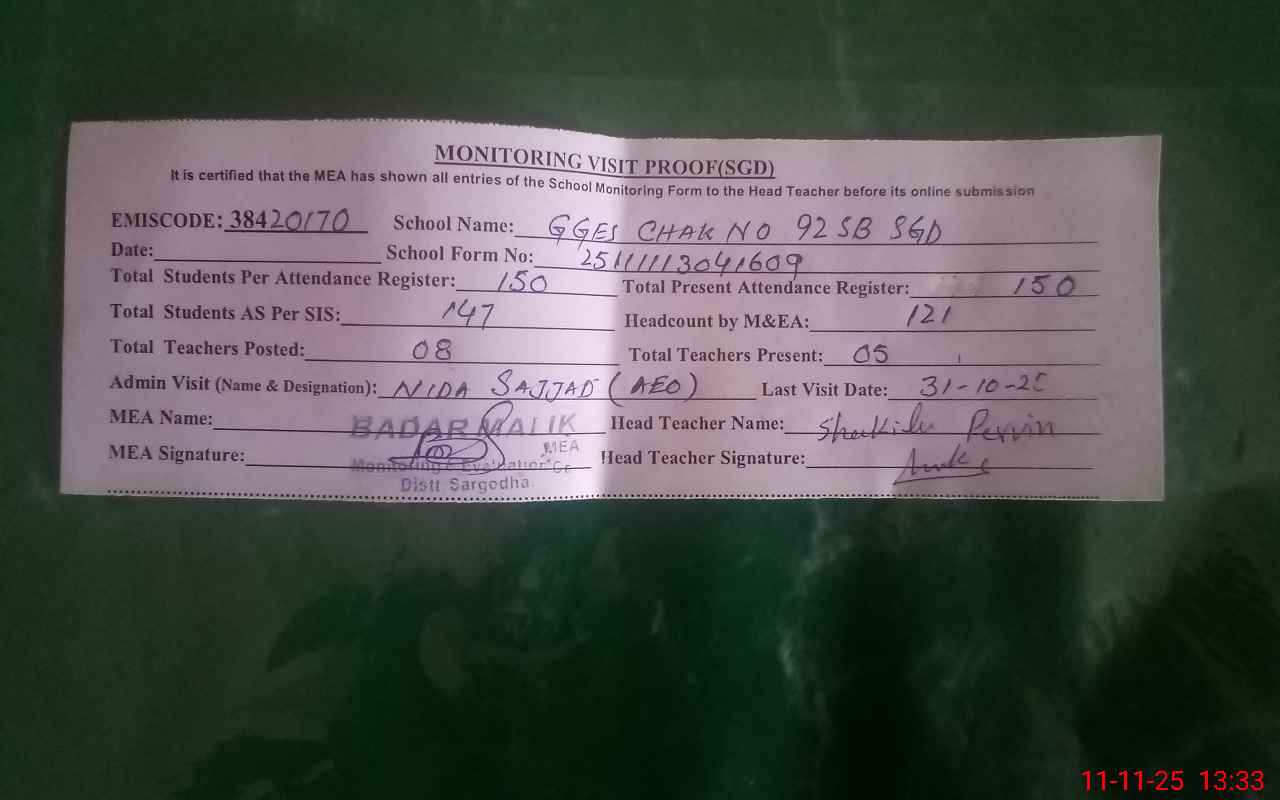 MONITORING VISIT PROOF(SGD)
It is certified that the MEA has shown all entries of the School Monitoring Form to the Head Teacher before its online submission
EMISCODE: 38420170 School Name: GGES CHAK NO 92 SB SGD
Date: School Form No: 25111113041609
Total Students Per Attendance Register: 150 Total Present Attendance Register: 150
Total Students AS Per SIS: 147 Headcount by M&EA: 121
Total Teachers Posted: 08 Total Teachers Present: 05
Admin Visit (Name & Designation): NIDA SAJJAD (AEO) Last Visit Date: 31-10-25
MEA Name: BADAR MALIK Head Teacher Name: Pervin
MEA
MEA Signature: Head Teacher Signature:
Monitoring & Evaluation
Distt Sargodha.
11-11-25 13:33